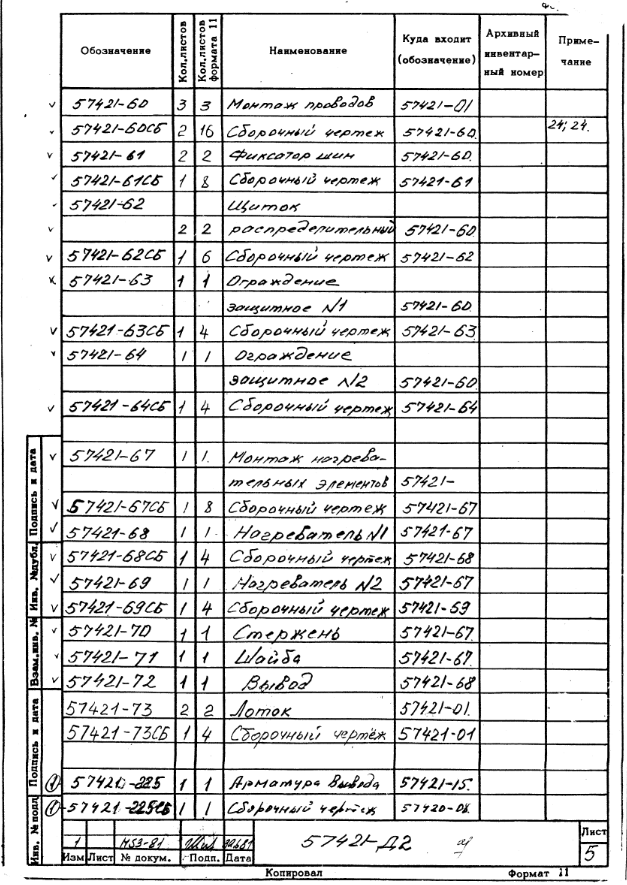 Обозначение Кол.листов Кол.листов формата 11 Наименование Куда входит (обозначение) Архивный инвентар-ный номер Приме-чание
v 57421-60 3 3 Монтаж проводов 57421-01
v 57421-60СБ 2 16 Сборочный чертеж 57421-60. 24; 24.
v 57421-61 2 2 Фиксатор шин 57421-60.
✓ 57421-61СБ 1 8 Сборочный чертеж 57421-61
57421-62 Щиток
v 2 2 распределительный 57421-60
v 57421-62СБ 1 6 Сборочный чертеж 57421-62
57421-63 1 1 Ограждение
защитное №1 57421-60.
v 57421-63СБ 1 4 Сборочный чертеж 57421-63
v 57421-64 1 1 Ограждение
защитное №2 57421-60
v 57421-64СБ 1 4 Сборочный чертеж 57421-64
v 57421-67 1 1. Монтаж нагрева-
тельных элементов 57421-
v 57421-67СБ 1 8 Сборочный чертеж 57421-67
v 57421-68 1 1 Нагреватель №1 57421-67
v 57421-68СБ 1 4 Сборочный чертеж 57421-68
v 57421-69 1 1 Нагреватель №2 57421-67
v 57421-69СБ 1 4 Сборочный чертеж 57421-59
v 57421-70 1 1 Стержень 57421-67.
v 57421-71 1 1 Шайба 57421-67.
v 57421-72 1 1 Вывод 57421-68
57421-73 2 2 Лоток 57421-01.
57421-73СБ 1 4 Сборочный чертёж 57421-01
① 57421-225 1 1 Арматура вывода 57421-15.
① 57421-225СБ 1 1 Сборочный чертеж
Подпись и дата
Инв. №дубл.
Взам.инв. №
Подпись и дата
Инв. №подл
1 М53-81
Изм Лист № докум. Подп. Дата
57421-Д2
Лист
5
Копировал Формат 11